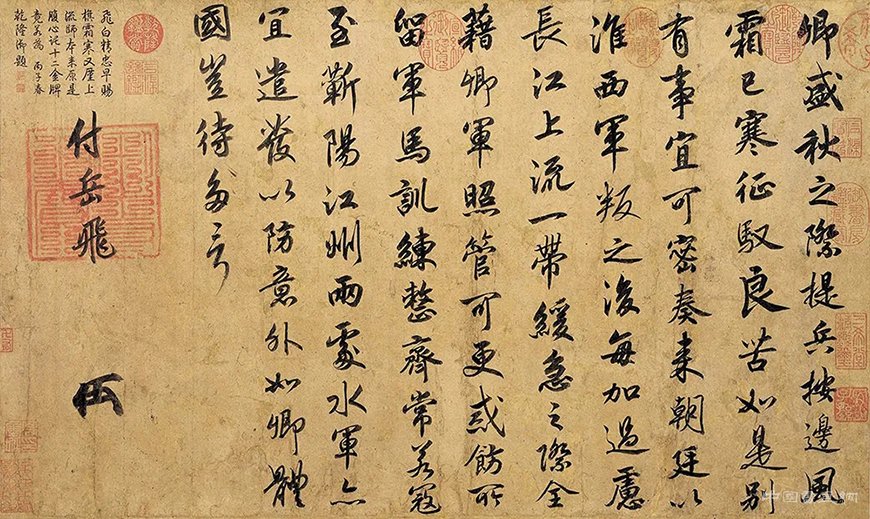 卿盛秋之際提兵按邊風
霜已寒征馭良苦如是別
有事宜可密奏來朝廷以
淮西軍叛之後每加過慮
長江上流一帶緩急之際全
藉卿軍照管可更戒飭所
留軍馬訓練整齊常若寇
至蘄陽江州兩處水軍亦
宜遣發以防意外如卿體
國豈待多言
付岳飛
飛白精忠早賜
旗霜寒又上
流師本來原是
腹心託十二金牌
竟為 丙子春
乾隆御題